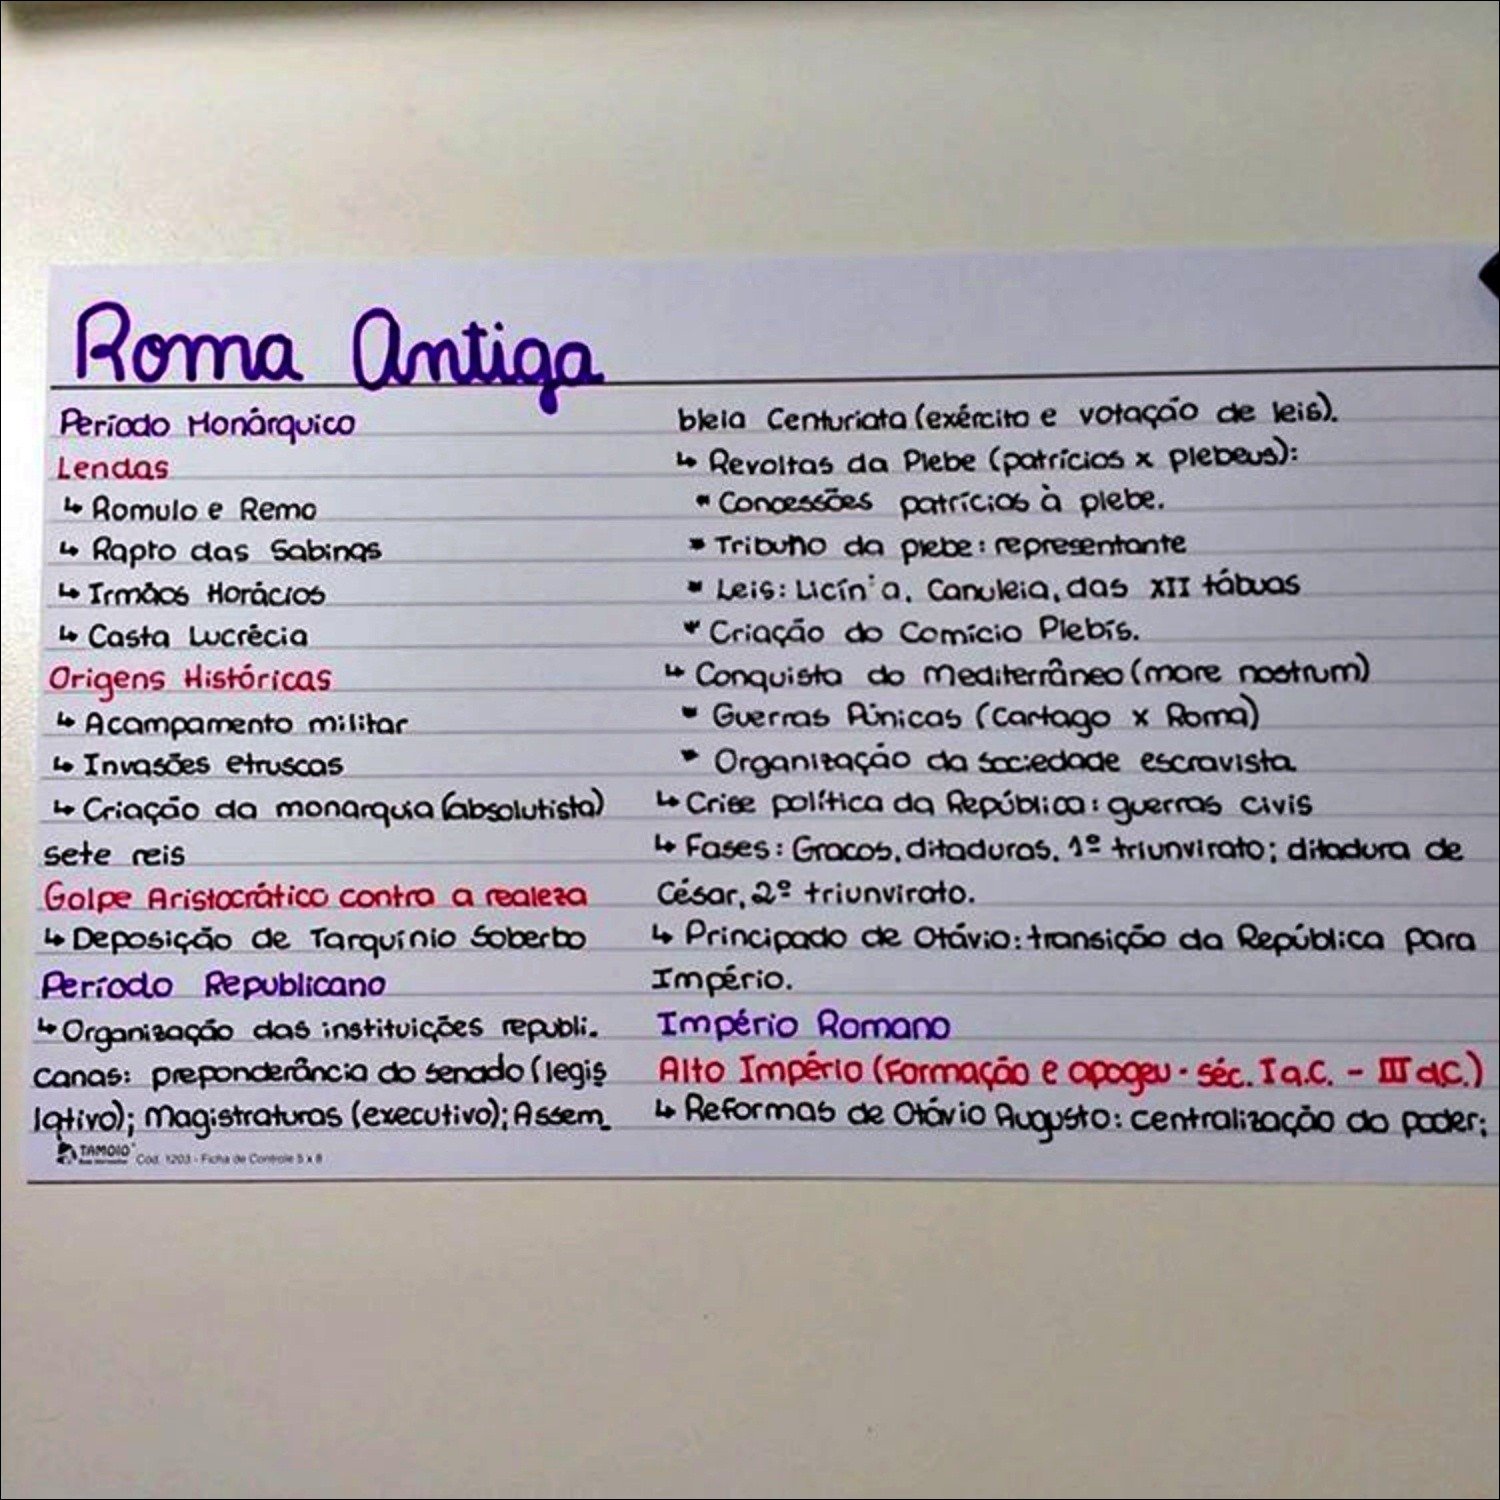 Roma Antiga
Período Monárquico
Lendas
↳ Romulo e Remo
↳ Rapto das Sabinas
↳ Irmãos Horácios
↳ Casta Lucrécia
Origens Históricas
↳ Acampamento militar
↳ Invasões etruscas
↳ Criação da monarquia (absolutista)
sete reis
Golpe Aristocrático contra a realeza
↳ Deposição de Tarquínio Soberbo
Período Republicano
↳ Organização das instituições republi-
canas: preponderância do senado (legis
lativo); Magistraturas (executivo); Assem
TAMOIO
Cód. 1203 - Ficha de Controle 5 x 8
bleia Centuriata (exército e votação de leis).
↳ Revoltas da Plebe (patrícios x plebeus):
* Concessões patrícios à plebe.
* Tribuno da plebe: representante
* Leis: Licín'a, Canuleia, das XII tábuas
* Criação do Comício Plebis.
↳ Conquista do Mediterrâneo (mare nostrum)
* Guerras Púnicas (Cartago x Roma)
* Organização da sociedade escravista
↳ Crise política da República: guerras civis
↳ Fases: Gracos, ditaduras, 1º triunvirato; ditadura de
César, 2º triunvirato.
↳ Principado de Otávio: transição da República para
Império.
Império Romano
Alto Império (Formação e apogeu - séc. I a.C. - III d.C.)
↳ Reformas de Otávio Augusto: centralização do poder;